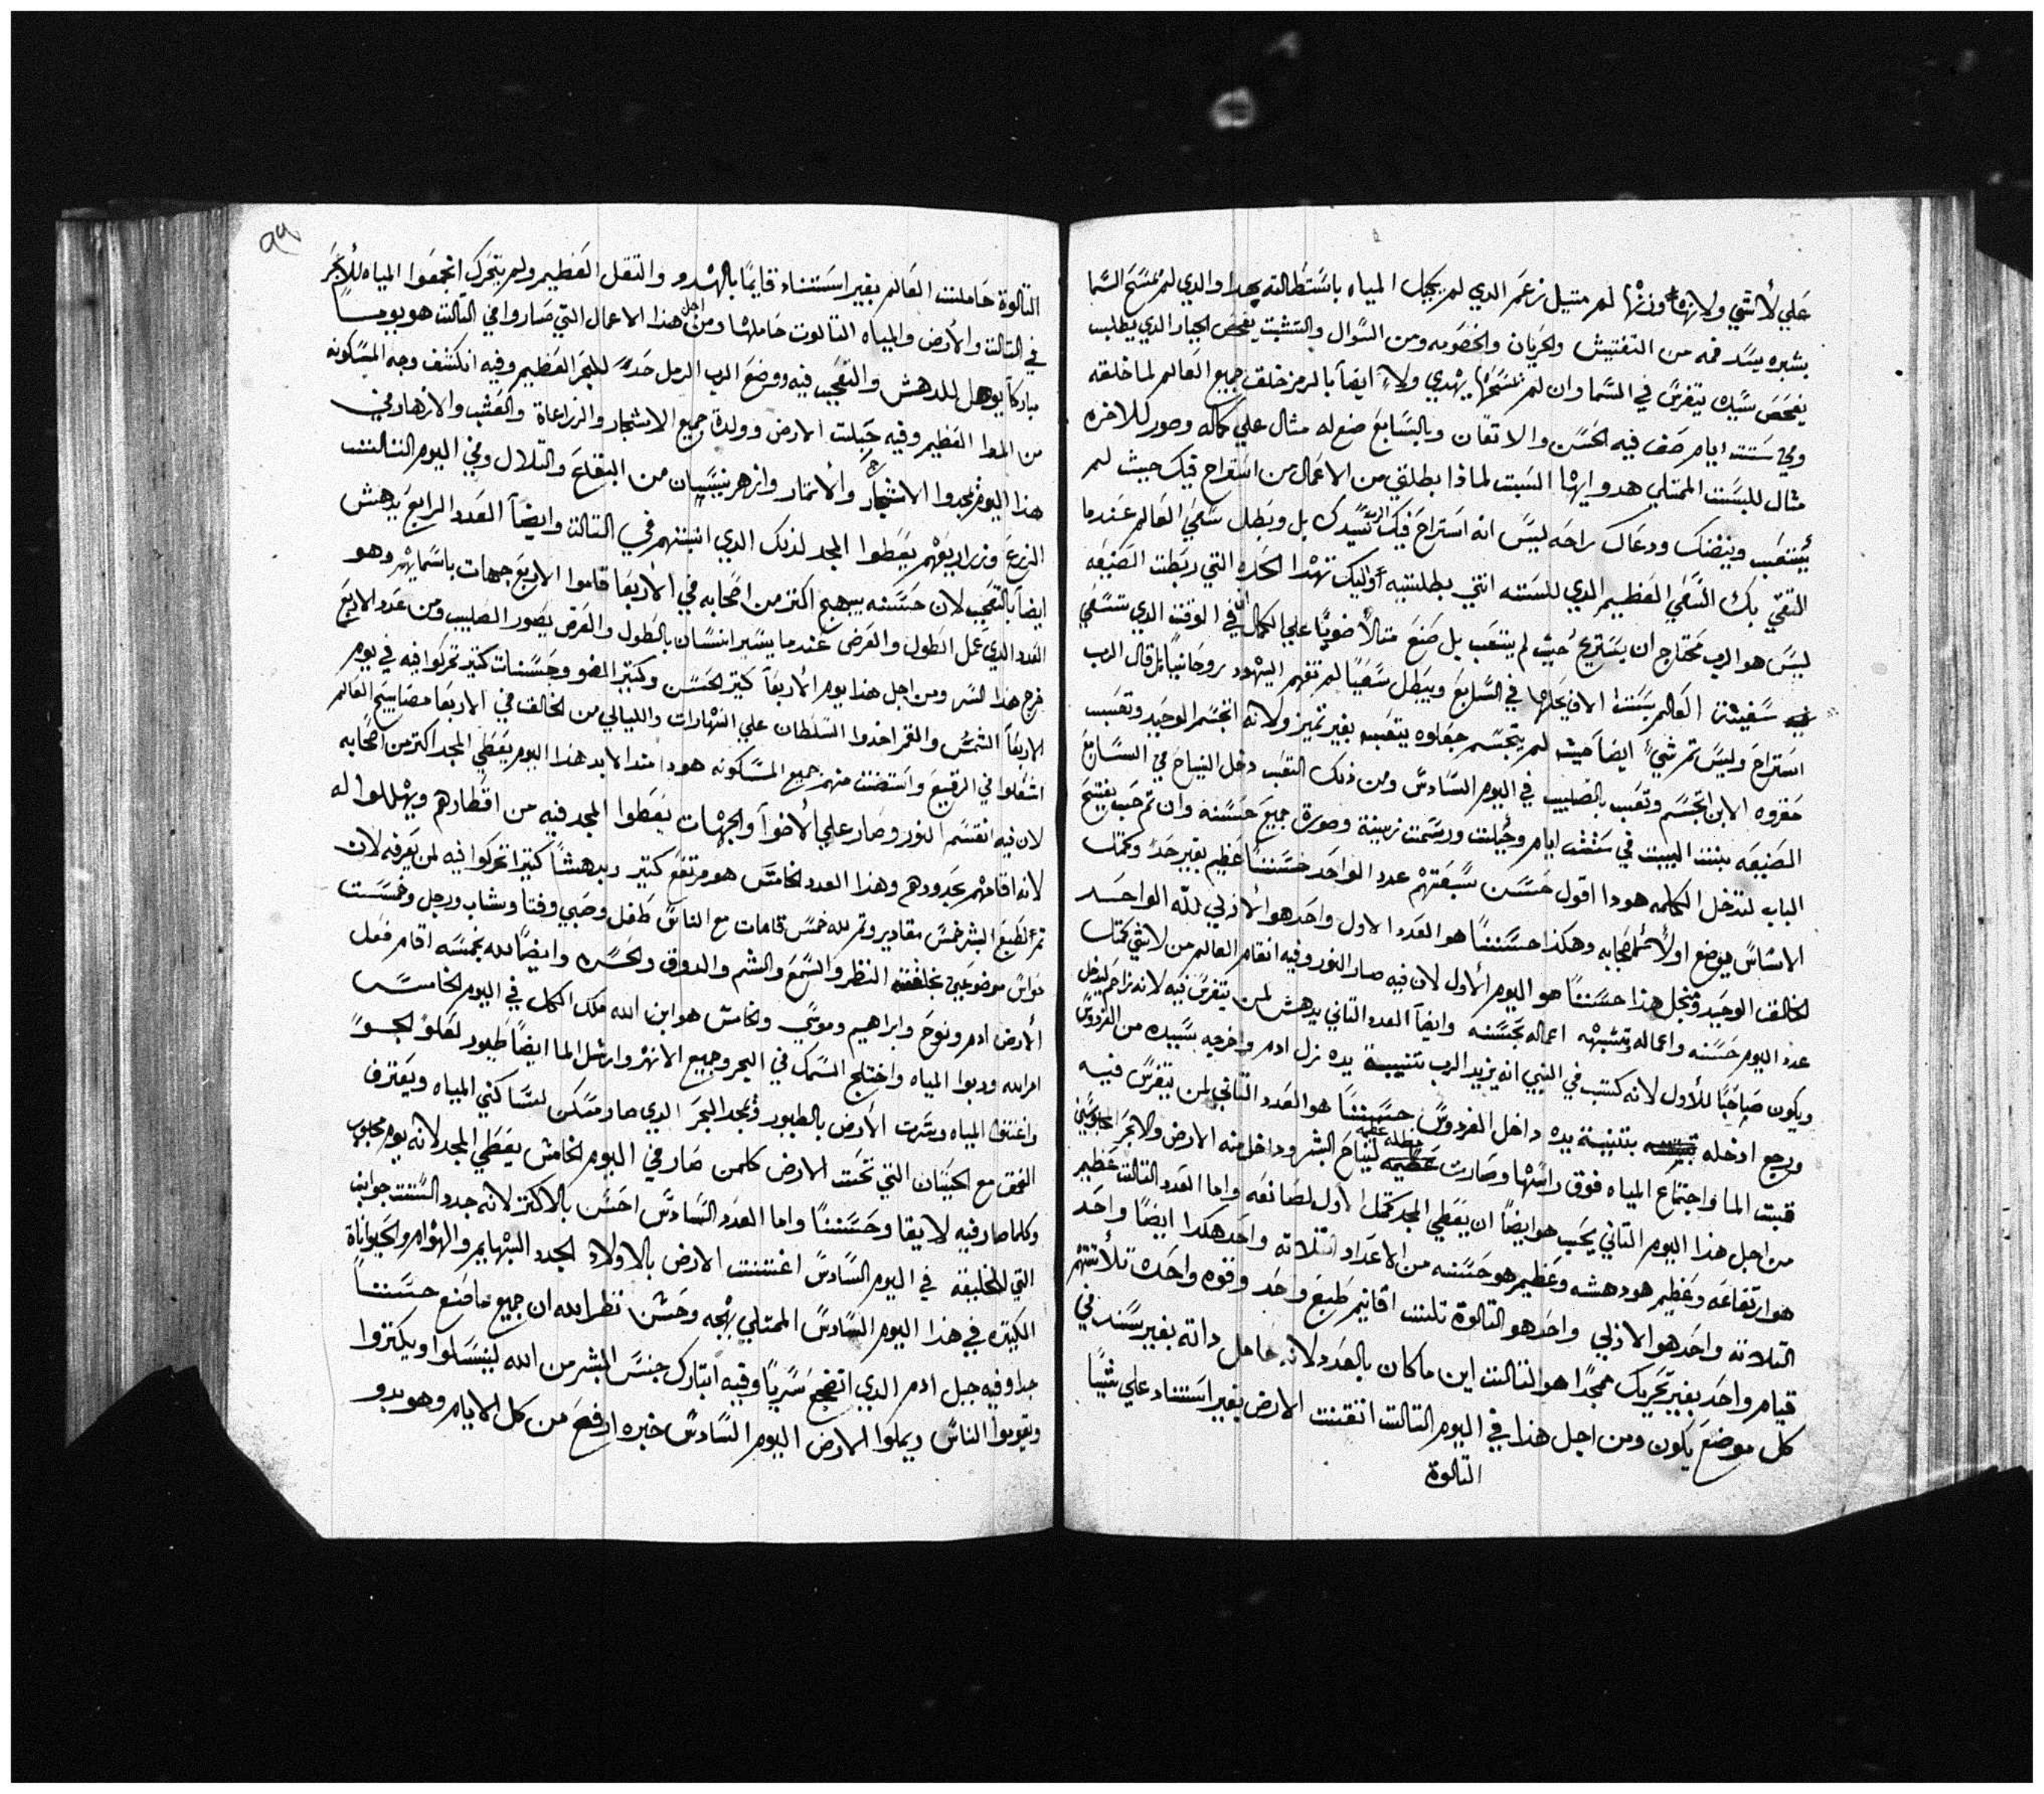 علي لا شي ولانها وزنها لم متيل زعم الدي لم يجبل المياه باستطالته بهدا والدي لم يمسح السما
بشبره يسد فمه من التفتيش والجريان والخضومه ومن السوال والتشبت يفحص الجبار الدي يطلب
يفحص سيده يتفرس في السما وان لم يمسحها يهدي ولا ايضا بالرمز خلق جميع العالم لما خلقه
وفي ستت ايام صف فيه الحسن والاتقان وبالسابع صنع له مثال علي كماله وصور للاخره
مثال للسبت الممتلي هدو ايها السبت لماذا بطلتي من الاعمال من استراح فيك حيث لم
يتعب وينضنك ودعاك راحه ليس انه استراح فيك الرب سيدك بل وبطل سعي العالم عندما
التقي بك السعي العظيم الدي للسته انتي بطلتيه واليك تهدا الحده التي ربطت الصنيعه
ليس هو الرب محتاج ان يستريح حيث لم يتعب بل صنع متالا ضويا علي الكمال في الوقت الدي تسعي
سفينة العالم بستت الاف يحلها في السابع ويبطل سعيا لم تفهم اليهود روحانيا بل قال الرب
استراح وليس تم شي ايضا حيث لم يتجسم جعلوه يتعب بغير تميز ولانه اتجسم الوحيد وتعب
حقروه الابن اتجسم وتعب بالصليب في اليوم السادس ومن ذلك التعب دخل النياح في السابع
الصنيعه بنت البيت في ستت ايام وجبلت ورسمت زينة وصورة جميع حسنه وان تم حب يفتح
الباب لتدخل الكلمه هودا اقول حسن سبعتهم عدد الواحد حسننا عظيم بغير حد وكملك
الاساس يوضع اولا لاصحابه وهكذا حسننا هو العدد الاول واحد هو الازلي لله الواحد
الخالق الوحيد ومنجل هذا حسننا هو اليوم الاول لان فيه صار النور وفيه اتقام العالم من لا شي كتلك
عدد اليوم حسنه واعماله وتشبه اعماله بحسنه وايضا العدد التاني يدهش لمن يتفرس فيه لانه زاحم ليدخل
ويكون صاحبا للاول لانه كتب في النبي انه يزيد الرب تتنية يده نزل ادم واخرجه بسيده من الفردوس
ورجع ادخله بتتنية يده داخل الفردوس حسننا هو العدد التاني لمن يتفرس فيه
قبت الما واجتماع المياه فوق راسها وصارت مظله عظيمه لنياح البشر وداخل منه الارض والابحر
من اجل هذا اليوم التاني يحب هو ايضا ان يعطي المجد كمتل الاول لصانعه واما العدد التالت عظيم
هو ارتفاعه وعظيم هو دهشه وعظيم هو حسنه من الاعداد التلاته واحد هكدا ايضا واحد
التلاته واحد هو الازلي واحد هو التالوة تلتت اقانيم طبع واحد وقوه واحده تلاتتهم
قيام واحد بغير تحريك ممجدا هو التالت اين ما كان بالعدد لانه حامل داته بغير سند في
كل موضع يكون ومن اجل هذا في اليوم التالت اتقنت الارض بغير استناد علي شيا
التالوة
٩٩
التالوة حاملت العالم بغير استناد قايما بالهدو والتقل العظيم ولم يتحرك اتجمعوا المياه للابحر
في التالت والارض والمياه التالوت حاملها ومن اجل هذا الاعمال التي صاروا في التالت هو يوما
مباركا يوهل للدهش والتعجب فيه ووضع الرب الرمل حدا للبحر العظيم وفيه انكشف وجه المسكونه
من الما العظيم وفيه جبلت الارض وولدة جميع الاشجار والزراعاة والعشب والازهار في
هذا اليوم يمجدوا الاشجار والاتمار وازهر نيسان من البقاع والتلال وفي اليوم التالت
الزرع وزراريعهم يعطوا المجد لذلك الدي انبتهم في التالت وايضا العدد الرابع يدهش
ايضا بالتعجب لان حسنه يبهج اكتر من اصحابه في الاربعا قاموا الاربع جهات باسمايهم وهو
العدد الدي عمل الطول والعرض عندما يسير انسان بالطول والعرض يصور الصليب ومن عدد الاربع
خرج هذا السر ومن اجل هذا يوم الاربعا كتير الحسن وكتير الضو وحسنات كتير تحركوا فيه في يوم
الاربعا الشمس والقمر اخدوا السلطان علي النهارات والليالي من الخالق في الاربعا مصابيح العالم
اشعلوا في الرقيع واستضت منهم جميع المسكونه هودا منذ الابد هذا اليوم يعطي المجد اكتر من اصحابه
لان فيه انقسم النور وصار علي الاضوا والجهات يعطوا المجد فيه من اقطارهم ويهللوا له
لانه اقامهم بحدودهم وهذا العدد الخامس هو مرتفع كتير ودهشا كتيرا تحركوا فيه لمن يعرفه لان
تم لطبع البشر خمس مقادير وتم لله خمس قامات مع الناس طفل وصبي وفتا وشاب ورجل وخمست
حواس موضوعين بخلقته النظر والسمع والشم والدوق والحسره وايضا لله بخمسه اقام فعل
الارض ادم ونوح وابراهيم وموسي والخامس هو ابن الله ملك الكل في اليوم الخامس
امر الله ودبوا المياه واختلج السمك في البحر وجميع الانهر وارسل الما ايضا طيور لعلو الجو
واغتنوا المياه وسرت الارض بالطيور ومجد البحر الدي صار مسكن لساكني المياه ويعترف
العمق مع الحيتان التي تحت الارض كلمن صار في اليوم الخامس يعطي المجد لانه يوم محبوب
وكلما صار فيه لايقا وحسننا واما العدد السادس احسن بالاكتر لانه جدد الستت جوانب
التي للخليقه في اليوم السادس اغتنت الارض بالاولاد الجدد البهايم والهوام والحيواناة
الكبيره في هذا اليوم السادس الممتلي بهجه وحسن نظر الله ان جميع ما صنع حسننا
جدا وفيه جبل ادم الدي اتضجع سريا وفيه اتبارك جنس البشر من الله لينسلوا ويكتروا
ويقوموا الناس ويملوا الارض اليوم السادس خبره ارفع من كل الايام وهو بدو